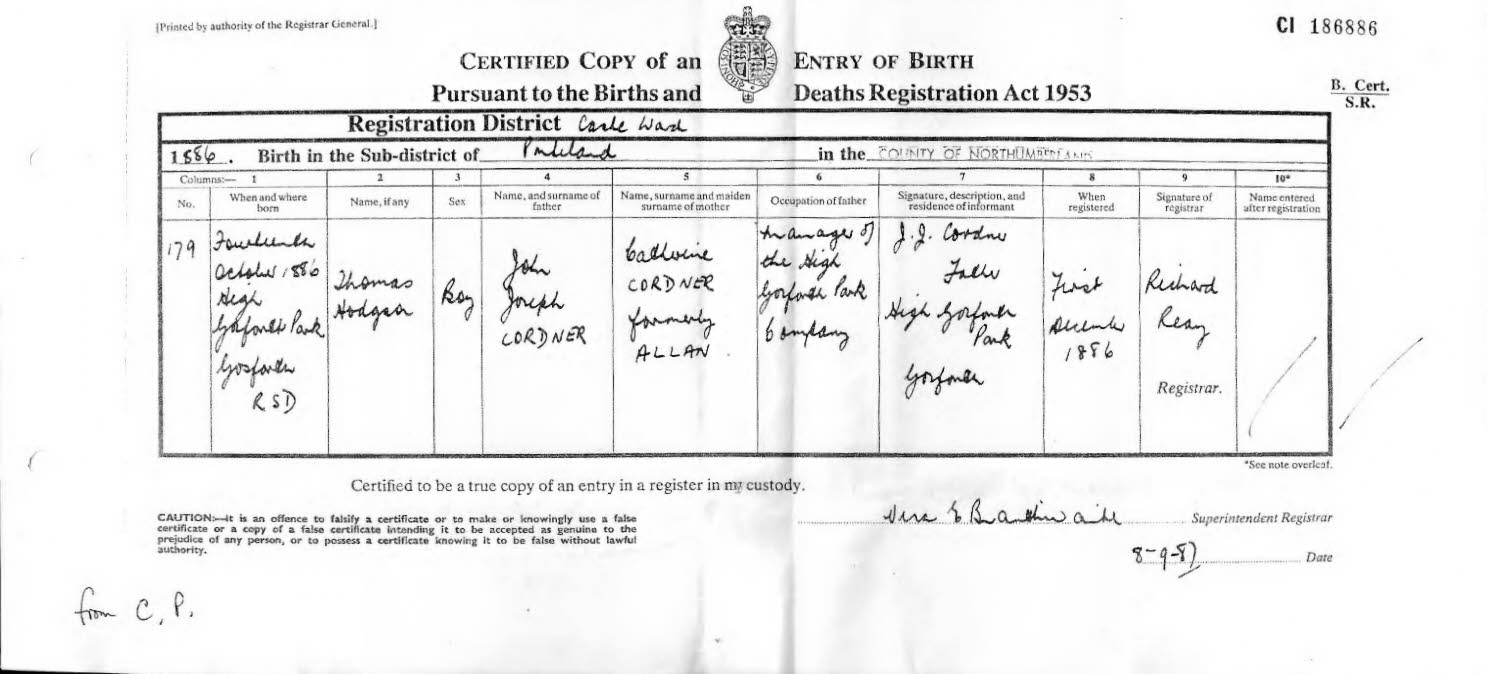 [Printed by authority of the Registrar General.]
CI 186886
CERTIFIED COPY of an ENTRY OF BIRTH
Pursuant to the Births and Deaths Registration Act 1953
B. Cert.
S.R.
Registration District Castle Ward
1886. Birth in the Sub-district of Ponteland in the COUNTY OF NORTHUMBERLAND
Columns:— 1 2 3 4 5 6 7 8 9 10*
No.
When and where
born
Name, if any
Sex
Name, and surname of
father
Name, surname and maiden
surname of mother
Occupation of father
Signature, description, and
residence of informant
When
registered
Signature of
registrar
Name entered
after registration
179
Fourteenth
October 1886
High
Gosforth Park
Gosforth
RSD
Thomas
Hodgson
Boy
John
Joseph
CORDNER
Catherine
CORDNER
formerly
ALLAN
Manager of
the High
Gosforth Park
Company
J. J. Cordner
Father
High Gosforth
Park
Gosforth
First
December
1886
Richard
Reay
Registrar.
*See note overleaf.
Certified to be a true copy of an entry in a register in my custody.
CAUTION:—It is an offence to falsify a certificate or to make or knowingly use a false
certificate or a copy of a false certificate intending it to be accepted as genuine to the
prejudice of any person, or to possess a certificate knowing it to be false without lawful
authority.
Vera E Branthwaite Superintendent Registrar
8-9-87 Date
from C. P.